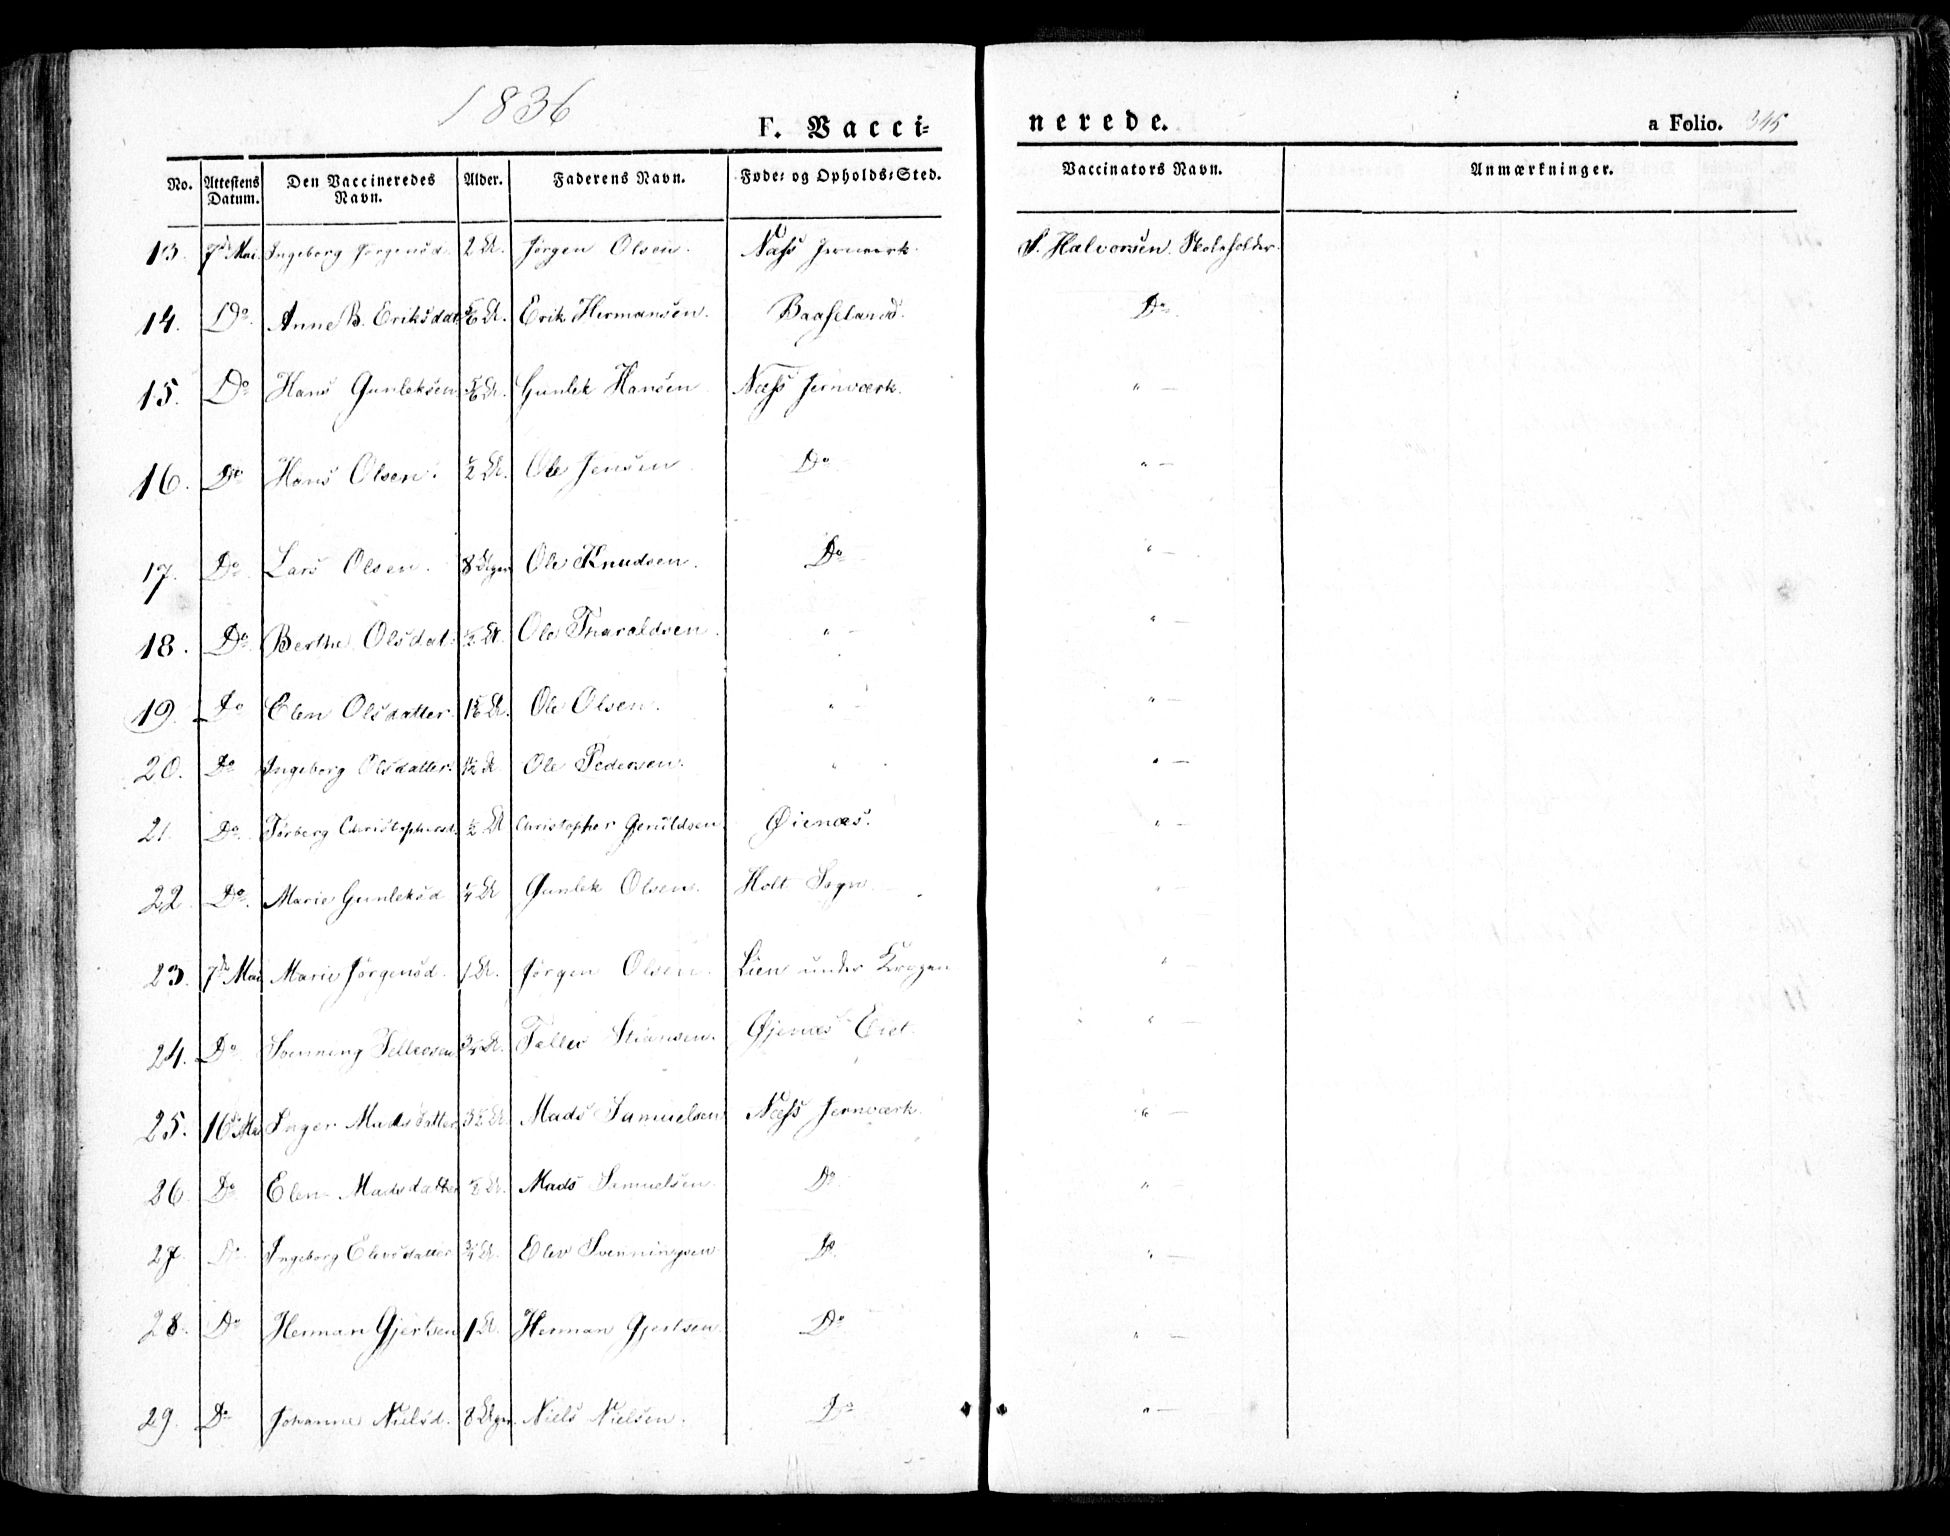 1836
F. Vacci-
nerede.
a Folio. 345
No. Attestens Datum. Den Vaccineredes Navn. Alder. Faderens Navn. Føde- og Opholds-Sted. Vaccinators Navn. Anmærkninger.
13. 7de Mai Ingeborg Jørgensd. 2 A. Jørgen Olsen. Næss Jernværk. Halvorsen. Skoleholder.
14. Do Anne B. Eriksdat Erik Hermansen. Baaseland. Do
15. Do Hans Gunleksen Gunlek Hansen Næss Jernværk. " —
16. Do Hans Olsen. ½ A. Ole Jensen Do " —
17. Do Lars Olsen. 8 Uger Ole Knudsen. Do " —
18. Do Berthe Olsdat. ½ A Ole Tharaldsen. " — " —
19. Do Elen Olsdatter. Ole Olsen. " — " —
20. Do Ingeborg Olsdatter. Ole Pedersen. " " —
21. Do Christophersd. ½ A Christopher Øienæs. " —
22. Do. Marie Gunleksd ¼ A Gunlek Olsen. Holt Sogn. " —
23. 7de Mai Marie Jørgensd. 1 A. Jørgen Olsen. Lien under Krogen " —
24. Do Svenning Tellevsen ¾ A. Tellev Stiansen. Øjenæs Eiet. " —
25. 16de Mai Inger Madsdatter Mads Samuelsen Næss Jernværk. " —
26. Do Elen Madsdatter ½ A. Mads Samuelsen Do " —
27. Do Ingeborg Elevsdatter ¾ A. Elev Svenningsen Do " —
28. Do Herman Gjertsen 1 A. Herman Gjertsen. Do " —
29. Do Johanne Nielsd. 8 Uger. Niels Nielsen. Do " —